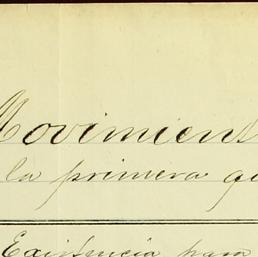 Movimient
la primera qu
Existencia para